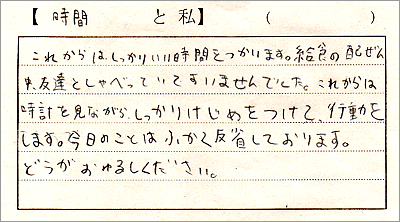 【 時間 と私】 ( )
これからは、しっかりいい時間をつかいます。給食の配ぜん
中、友達としゃべっていてすいませんでした。これからは
時計を見ながら、しっかりけじめをつけて、行動を
します。今日のことは、ふかく反省しております。
どうがおゆるしください。